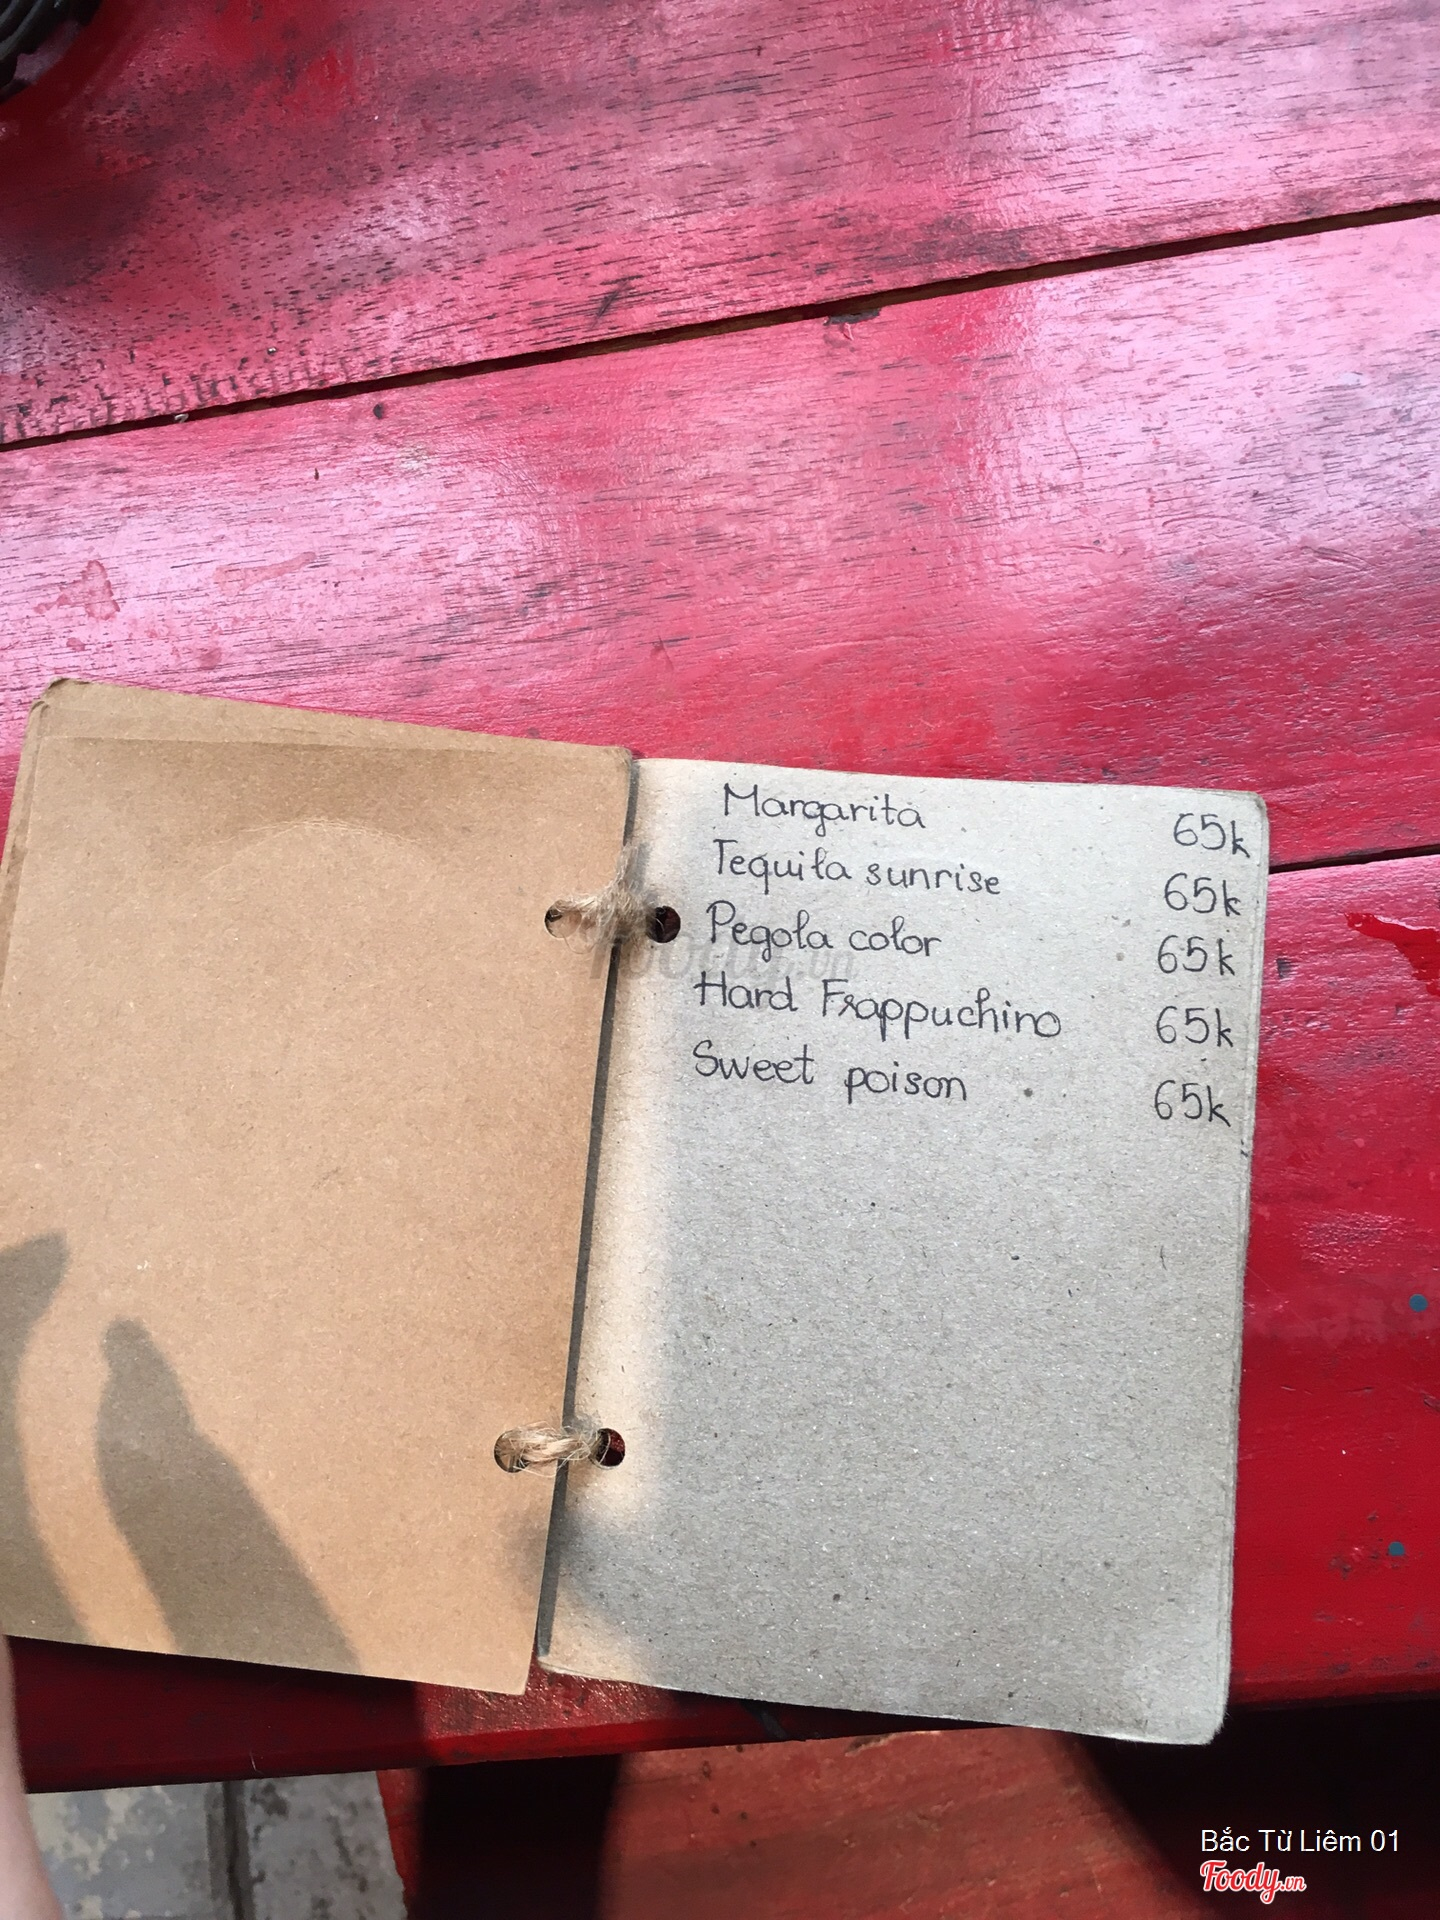 Margarita 65k
Tequila sunrise 65k
Pegola color 65k
Hard Frappuchino 65k
Sweet poison 65k
Foody.vn
Bắc Từ Liêm 01
Foody.vn